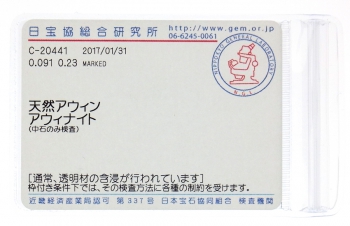 日宝協総合研究所
http://www.gem.or.jp
06-6245-0061
C-20441 2017/01/31
0.091 0.23 MARKED
NIPPOKYO GENERAL LABORATORY
N.G.L.
天然アウィン
アウィナイト
(中石のみ検査)
[通常、透明材の含浸が行われています]
枠付き条件下では、その検査方法に各種の制約を受けます。
近畿経済産業局認可 第337号 日本宝石協同組合 検査機関